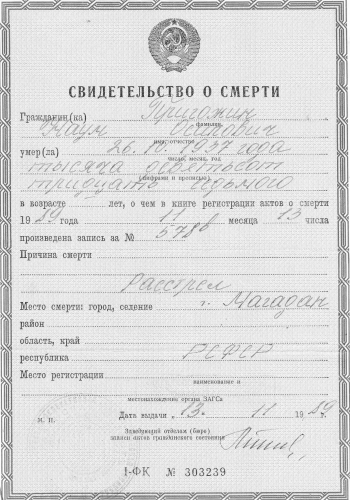 СВИДЕТЕЛЬСТВО О СМЕРТИ
Гражданин(ка) Пригожин
фамилия
Наум Осипович
имя, отчество
умер(ла) 26.10.1937 года
число, месяц, год
тысяча девятьсот
тридцать седьмого
(цифрами и прописью)
в возрасте лет, о чем в книге регистрации актов о смерти
19 89 года 11 месяца 13 числа
произведена запись за № 578в
Причина смерти
Расстрел
Место смерти: город, селение г. Магадан
район
область, край
республика РСФСР
Место регистрации
наименование и
местонахождение органа ЗАГСа
Дата выдачи „ 13 “ 11 19 89 г.
М. П.
Заведующий отделом (бюро)
записи актов гражданского состояния
I-ФК № 303239